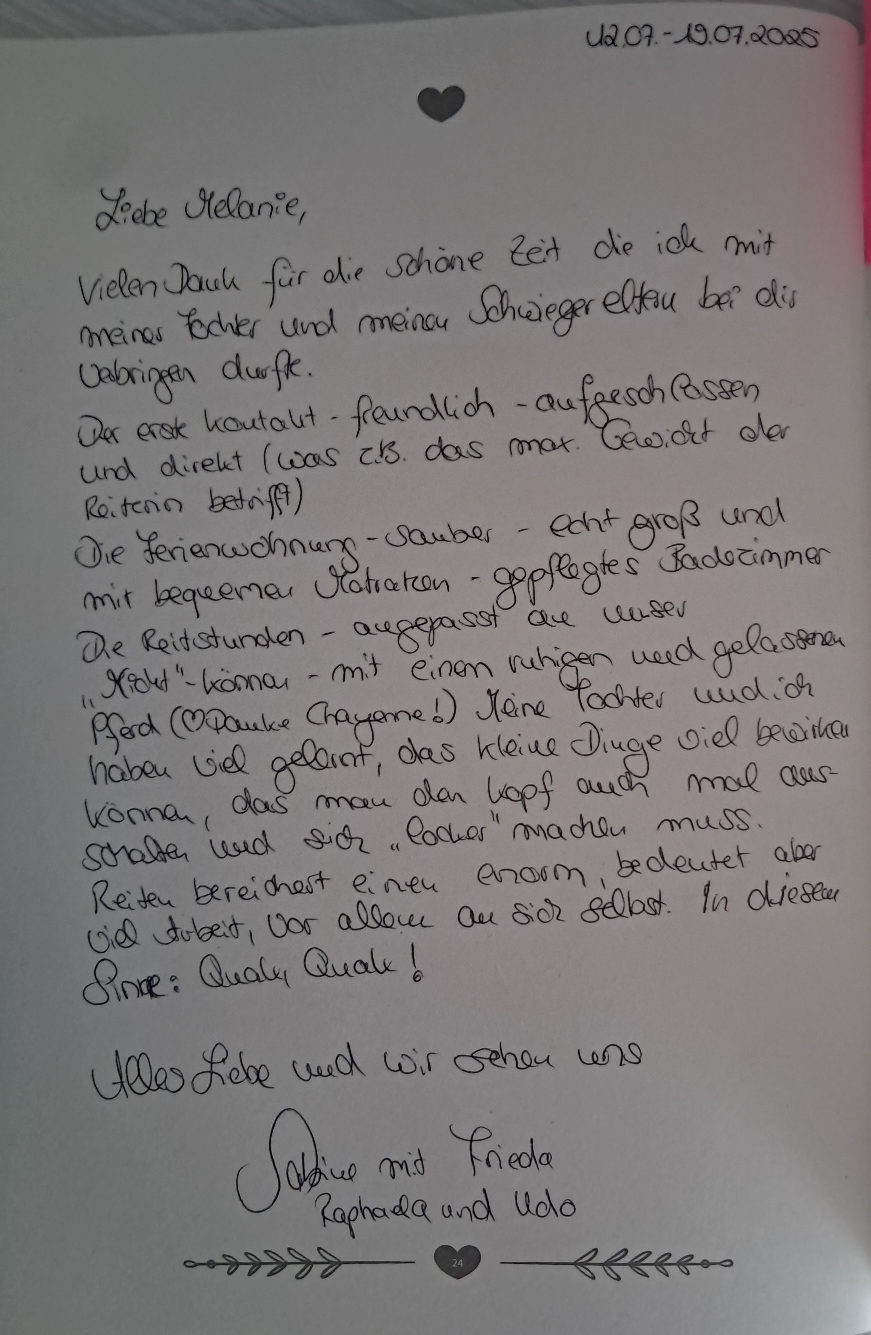 12.07.-19.07.2025
Liebe Melanie,
Vielen Dank für die schöne Zeit die ich mit
meiner Tochter und meinen Schwiegereltern bei dir
verbringen durfte.
Der erste Kontakt - freundlich - aufgeschlossen
und direkt (was z.B. das max. Gewicht der
Reiterin betrifft)
Die Ferienwohnung - sauber - echt groß und
mit bequemen Matratzen - gepflegtes Badezimmer
Die Reitstunden - angepasst an unser
„Nicht"-können - mit einem ruhigen und gelassenen
Pferd (♡Danke Chayenne!) Meine Tochter und ich
haben viel gelernt, das kleine Dinge viel bewirken
können, das man den Kopf auch mal aus-
schalten und sich „locker" machen muss.
Reiten bereichert einen enorm, bedeutet aber
viel Arbeit, vor allem an sich selbst. In diesem
Sinne: Quak, Quak!
Alles Liebe und wir sehen uns
Sabine mit Frieda
Raphaela und Udo
24